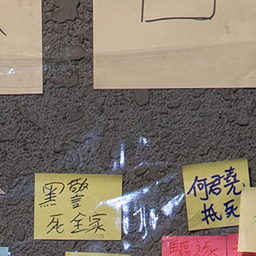 黑警
死全家
何君堯
抵死
驅逐